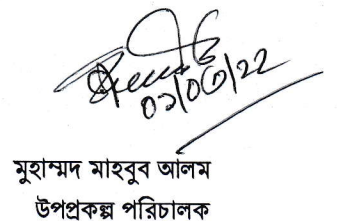 ০১/০৩/২২
মুহাম্মদ মাহবুব আলম
উপপ্রকল্প পরিচালক